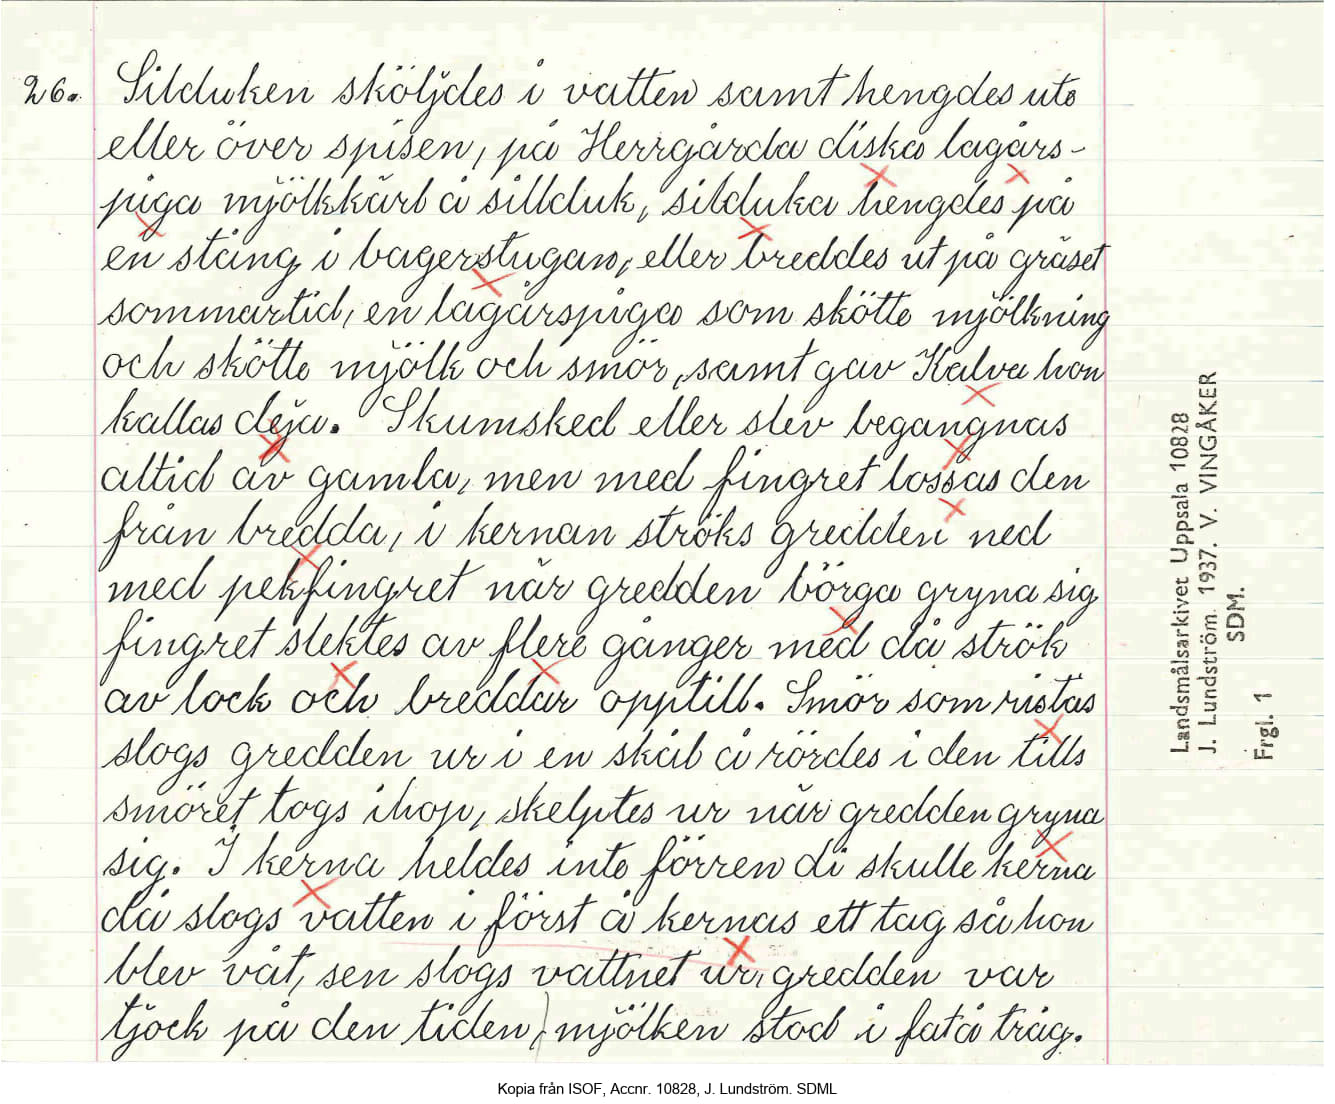 26. Silduken sköljdes i vatten samt hengdes ute
eller över spisen, på Herrgårda diska lagårs-
piga mjölkkärl å sillduk, silduka hengdes på
en stång i bagerstugan, eller breddes ut på gräset
sommartid, en lagårspiga som skötte mjölkning
och skötte mjölk och smör, samt gav Kalva hon
kallas deja. Skumsked eller slev begangnas
altid av gamla, men med fingret lossas den
från bredda, i kernan ströks gredden ned
med pekfingret när gredden börga gryna sig
fingret slektes av flere gånger med då strök
av lock och breddar opptill. Smör som ristas
slogs gredden ur i en skål å rördes i den tills
smöret togs ihop, skelptes ur när gredden gryna
sig. I kerna heldes inte förren di skulle kerna
då slogs vatten i först å kernas ett tag så hon
blev våt, sen slogs vattnet ur, gredden var
tjock på den tiden, mjölken stod i fat å tråg.
Landsmålsarkivet Uppsala 10828
J. Lundström. 1937. V. VINGÅKER
SDM.
Frgl. 1
Kopia från ISOF, Accnr. 10828, J. Lundström. SDML